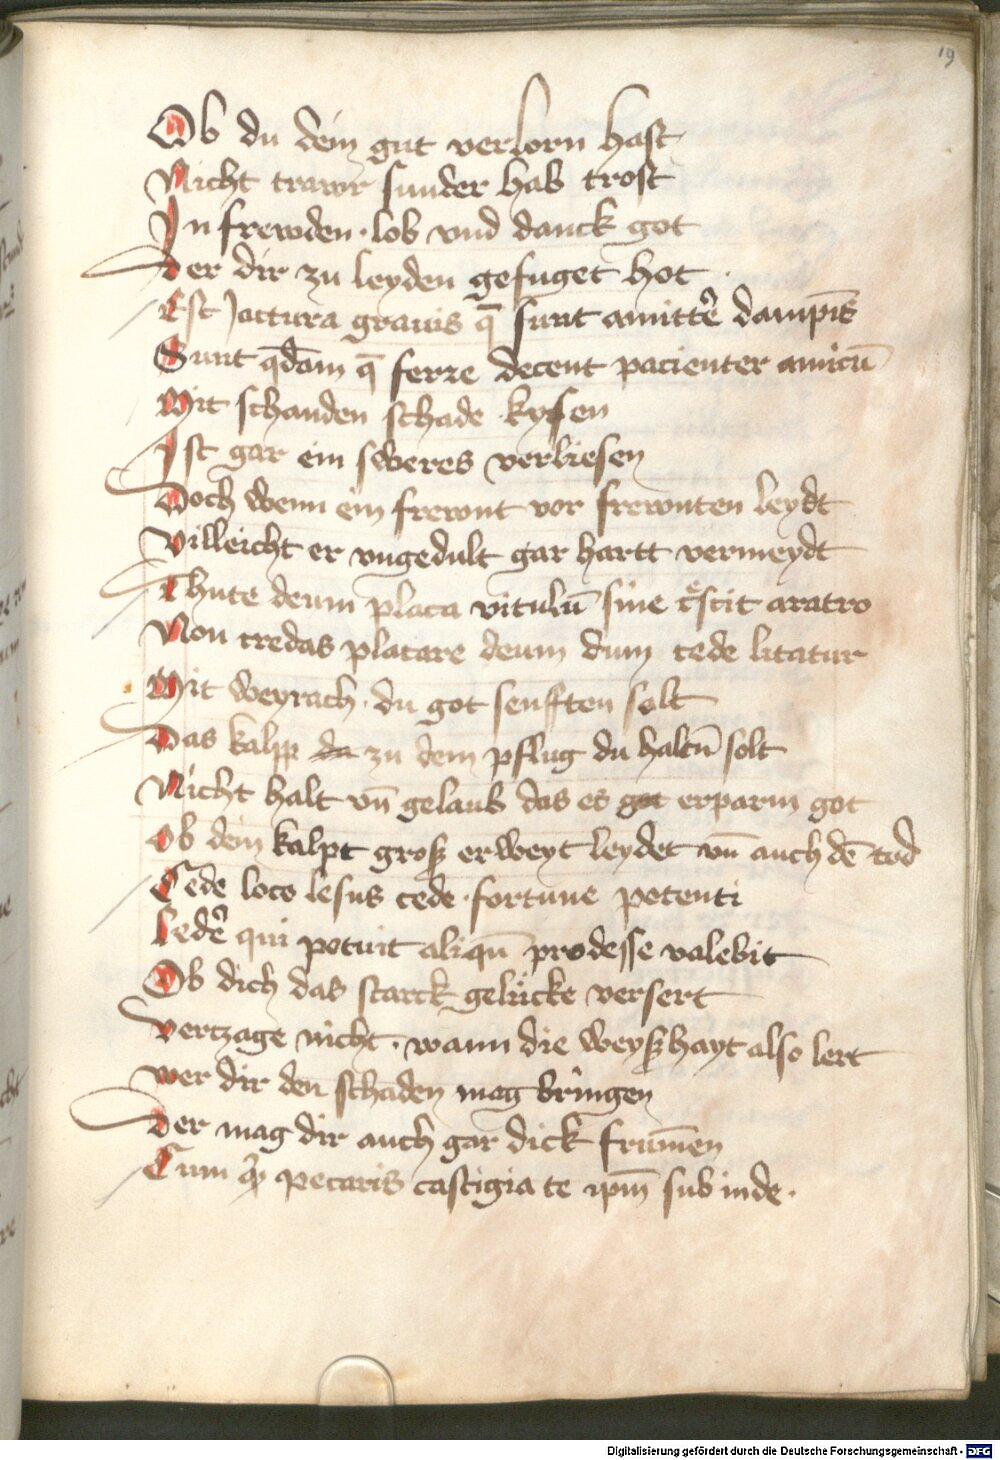 19
Ob du dein gut verlorn hast
Nicht trawr sunder hab trost
In frewden · lob vnd danck got
Der dir zu leyden gefuget hot ·
Est Jactura grauis q̄ sunt amittẽ dampnis̄
Sunt q̄dam q̄ ferre decent pacienter amicū
Mit schanden schade kysen
Ist gar ein sweres verliesen
Doch wenn ein frewnt vor frewnten leydt
Villeicht er vngedult gar hartt vermeydt
Thute deum placa vitulū sine c̄scit aratro
Non credas placare deum dum cede litatur
Mit weyrach · du got senfften solt
Das kalpp du zu dem pflug du haltn̄ solt
Nicht halt vn̄ gelaub das es got erparm got
Ob dein kalpt groß erweyt leydet vn̄ auch dē tod
Cede loco lesus cede · fortune potenti
Ledẽ qui potuit aliqn̄ prodesse valebit
Ob dich das starck gelücke versert
Vertzage nicht · wann die weyßhayt also lert
wer dir den schaden mag bringen
Der mag dir auch gar dick frum̄en
Cum qd peccaris castigia te ipm̄ sub inde ·
Digitalisierung gefördert durch die Deutsche Forschungsgemeinschaft - DFG